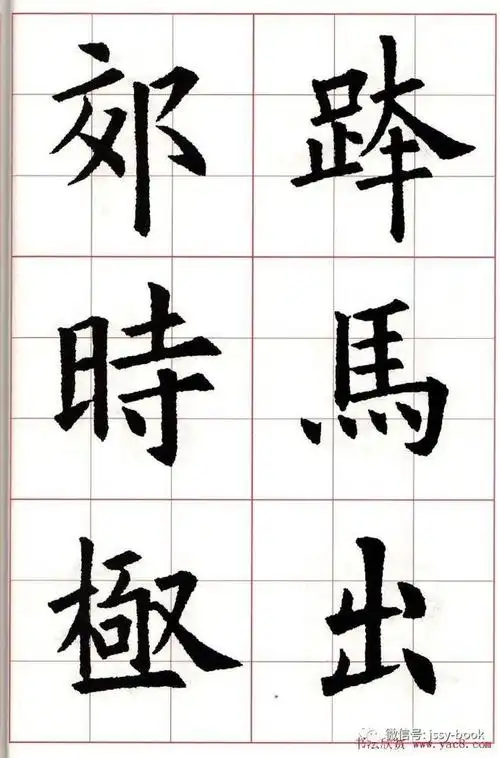 跨馬出
郊時極
微信号: jssy-book
书法欣赏 www.yac8.com